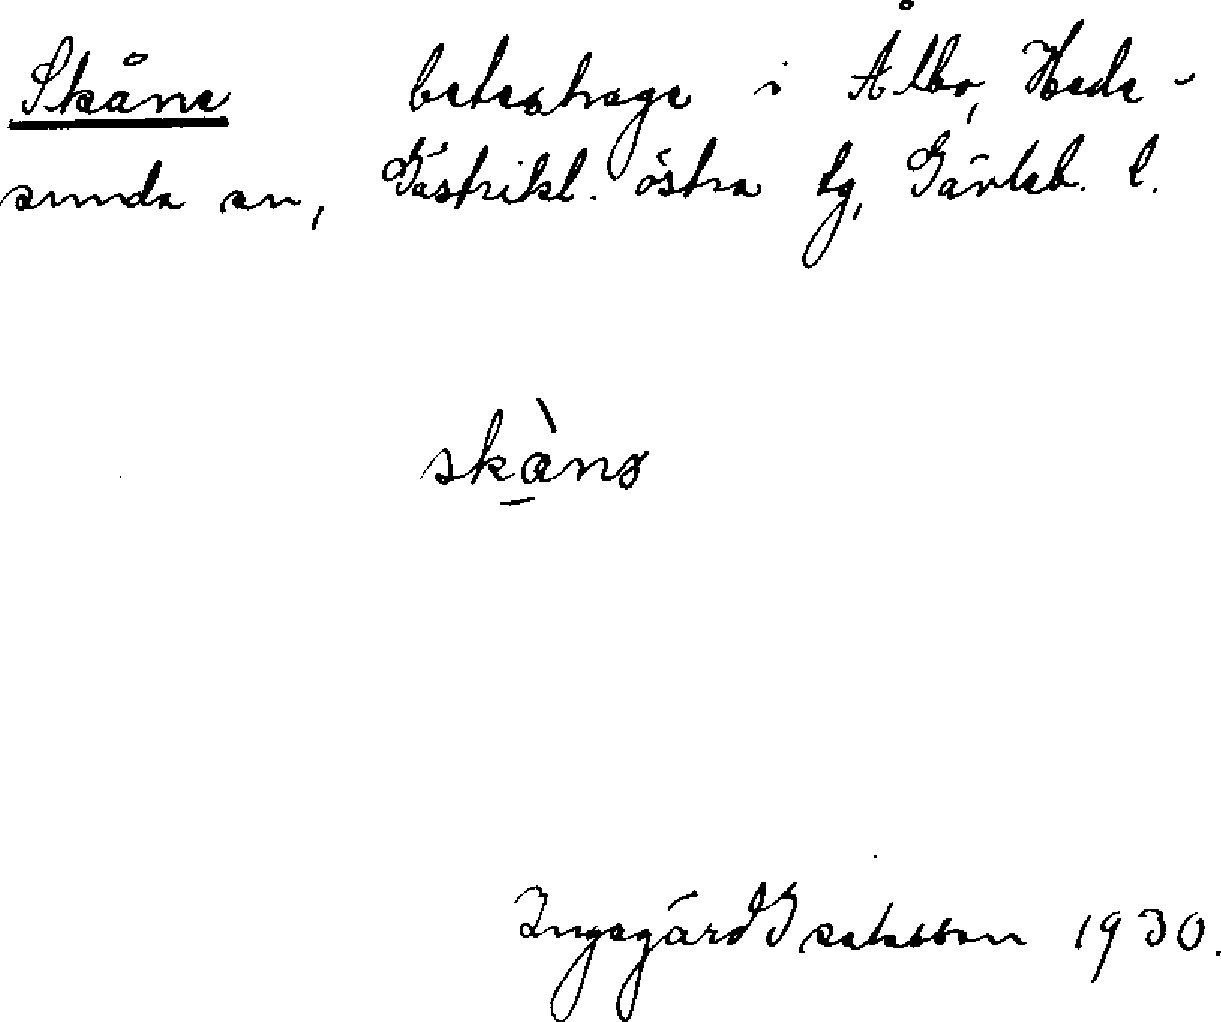 Skåne beteshage i Ålbo, Hede-
sunda sn, Gästrikl. östra tg, Gävleb. l.
skànə
Ingegärd Isaksson 1930.